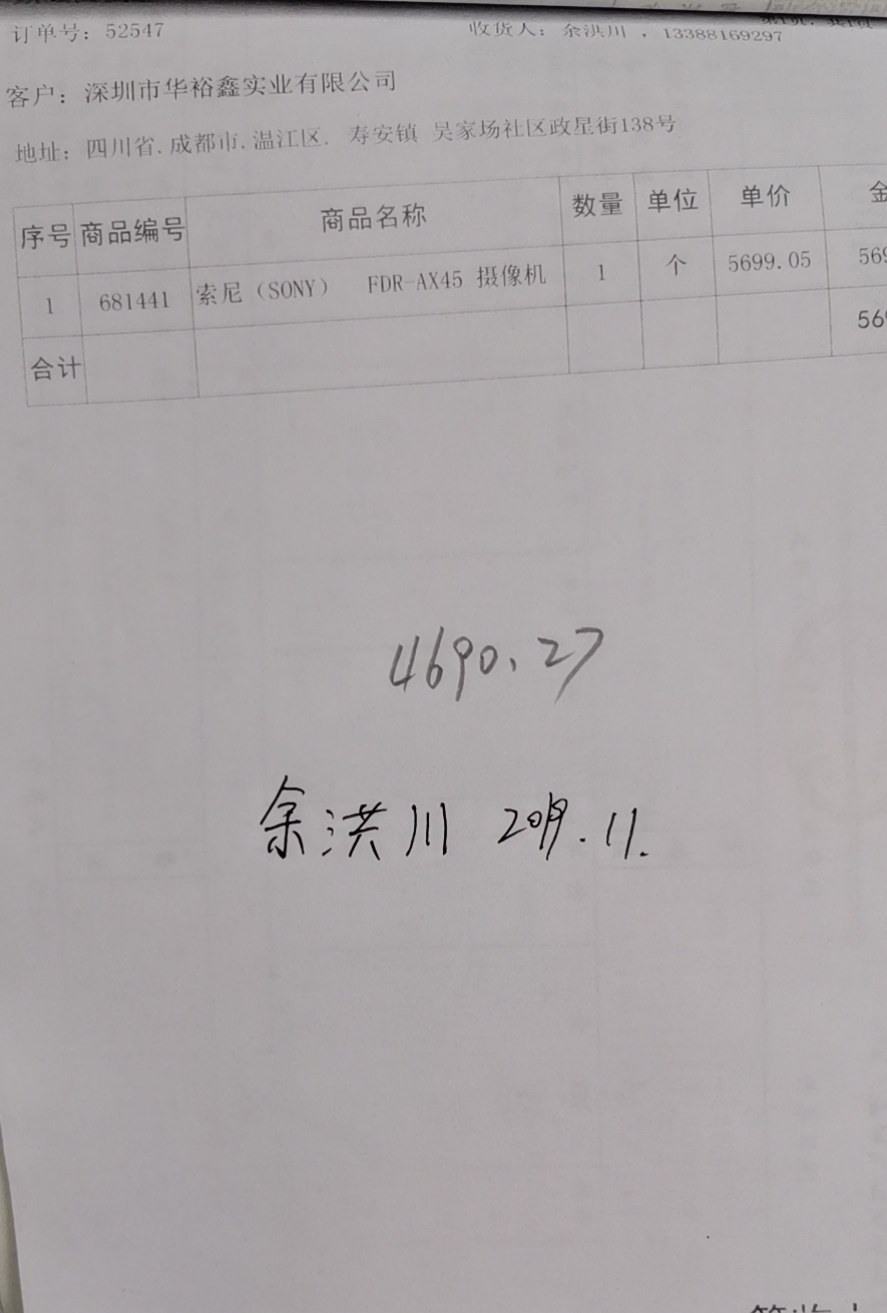 订单号：52547 收货人：余洪川，13388169297
客户：深圳市华裕鑫实业有限公司
地址：四川省.成都市.温江区. 寿安镇 吴家场社区政星街138号
序号 商品编号 商品名称 数量 单位 单价 金
1 681441 索尼（SONY） FDR-AX45 摄像机 1 个 5699.05 569
合计 569
4690.27
余洪川 2019.11.